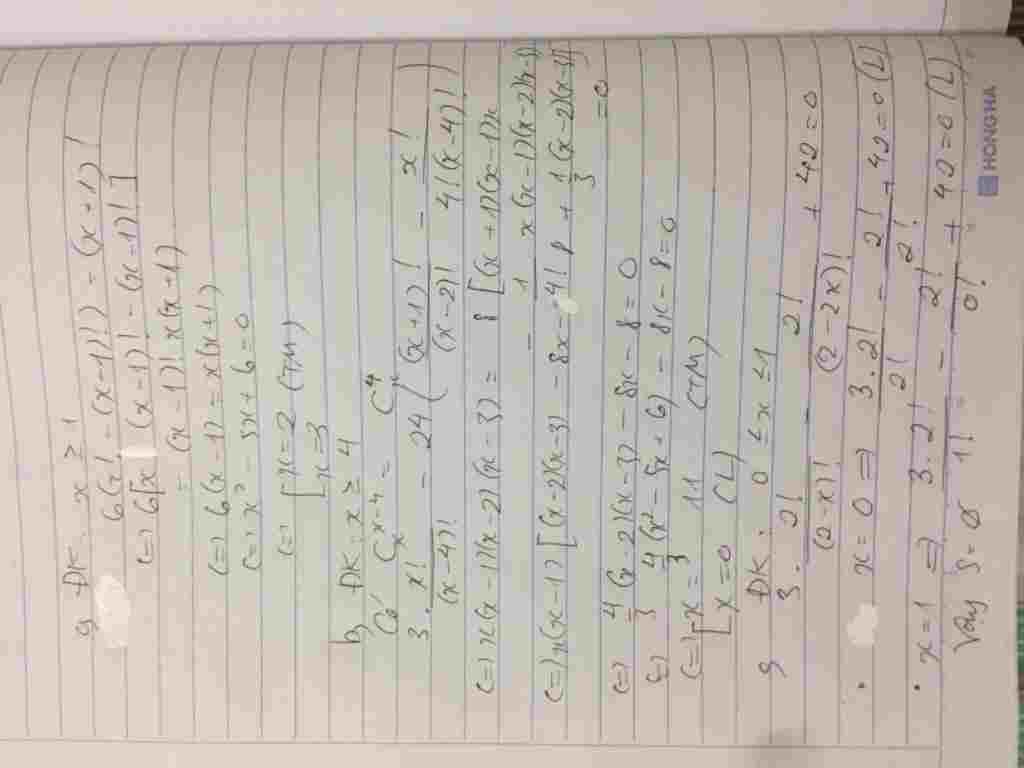 a, ĐK: x ≥ 1
6(x! - (x-1)!) = (x+1)!
(=) 6[x (x-1)! - (x-1)!]
= (x-1)! x(x+1)
(=) 6(x-1) = x(x+1)
(=) x² - 5x + 6 = 0
(=) [x=2 (TM)
[x=3
b, ĐK: x ≥ 4
Có C_x^{x-4} = C_x^4
3. x!/(x-4)! = 24((x+1)!/(x-2)! - x!/4!(x-4)!)
(=) x(x-1)(x-2)(x-3) = 8[(x+1)(x-1)x
- 1 x(x-1)(x-2)(x-3)]
(=) x(x-1)[(x-2)(x-3) - 8x - 8 + 1/3 (x-2)(x-3)]
=0
(=) 4/3 (x-2)(x-3) - 8x - 8 = 0
(=) 4/3 (x² - 5x + 6) - 8x - 8 = 0
(=) [x = 11 (TM)
[x=0 (L)
ĐK: 0 ≤ x ≤ 1
3. 2!/(2-x)! - 2!/(2-2x)! + 42 = 0
• x = 0 => 3.2!/2! - 2!/2! + 42 = 0 (L)
• x = 1 => 3.2!/1! - 2!/0! + 42 = 0 (L)
Vậy S = ∅
HONG HA